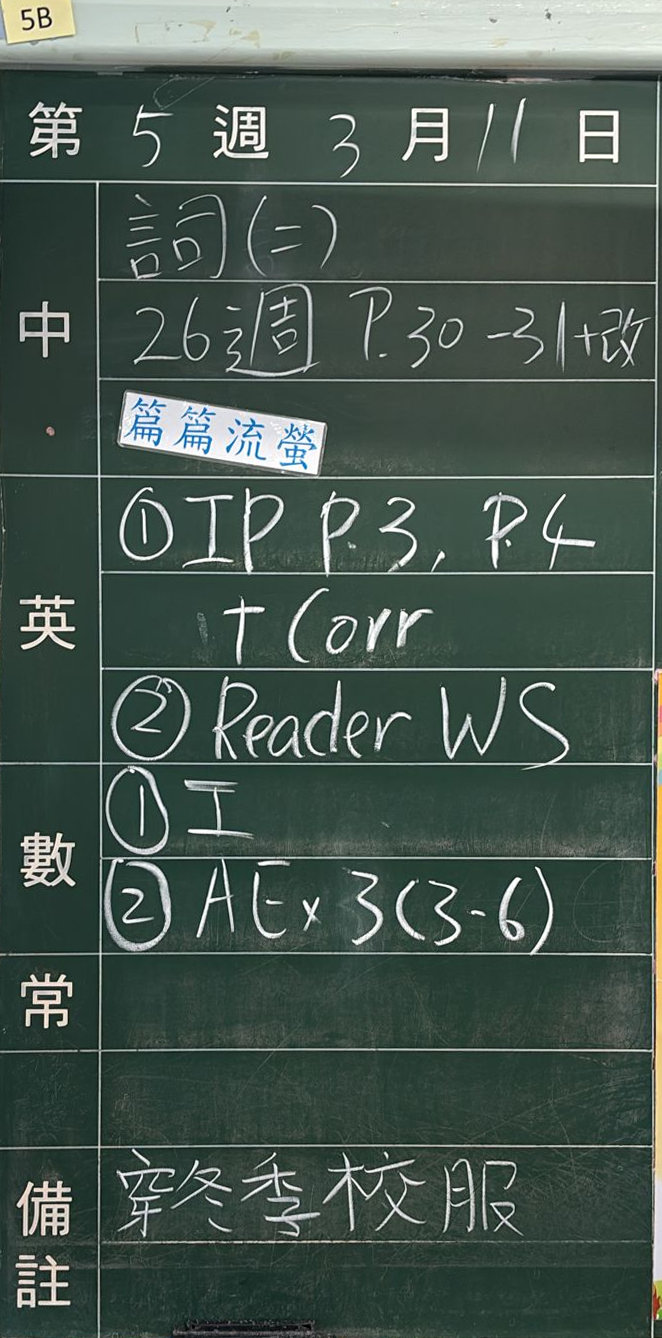 5B
第 5 週 3 月 11 日
中
詞(二)
26週 P.30-31+改
篇篇流螢
英
①IP P.3, P.4
+ Corr
② Reader WS
數
① 工
② AEx 3(3-6)
常
備註
穿冬季校服